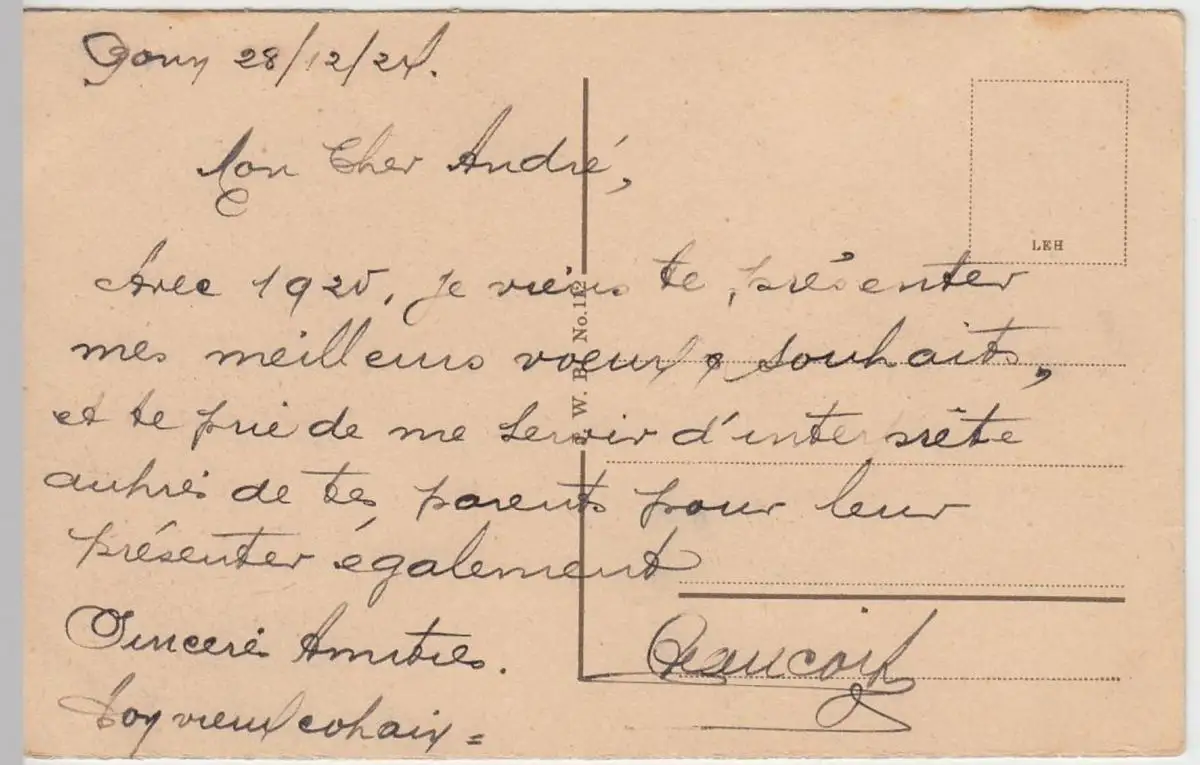 Gouy 28/12/24.
Mon Cher André,
LEH
Avec 1925, je viens te présenter
mes meilleurs voeux & souhaits,
et te prie de me servir d'interprète
auprès de tes parents pour leur
présenter également
Sincères Amitiés.
Ton vieux cohaix =
W. B. No. 112